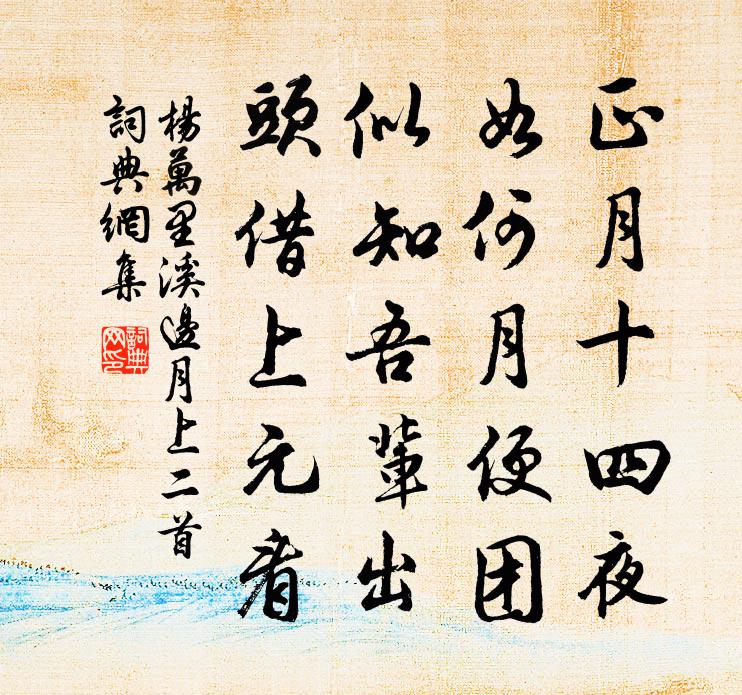 正月十四夜
如何月便团
似知吾輩出
頭借上元看
楊萬里溪邊月上二首
詞典網集
詞典网印